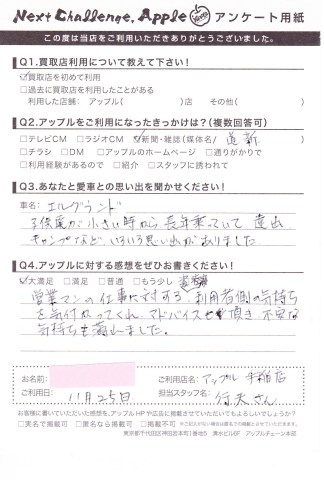 Next Challenge. Apple アンケート用紙
この度は当店をご利用いただきありがとうございました。
Q1.買取店利用について教えて下さい!
☑買取店を初めて利用
□過去に買取店を利用したことがある
利用した店舗: アップル( )店 その他( )
Q2.アップルをご利用になったきっかけは?(複数回答可)
□テレビCM □ラジオCM ☑新聞・雑誌(媒体名/ 道新 )
□チラシ □DM □アップルのホームページ □通りがかりで
□利用経験があるので □紹介 □スタッフに誘われて
Q3.あなたと愛車との思い出を聞かせください!
車名: エルグランド
子供達が小さい時から、長年乗っていて 遠出
キャンプなど、いろいろ思い出がありました
Q4.アップルに対する感想をぜひお書きください!
☑大満足 □満足 □普通 □もう少し
営業マンの仕事に対する、利用者側の気持ち
を気付かってくれ、アドバイスを頂き 不安な
気持ちも薄れました。
お名前:
ご利用店名: アップル 手稲店
ご利用日: 11月25日
担当スタッフ名: 行天さん
お客様に書いていただいた感想を、アップルHPや広告に掲載させていただいてもよろしいでしょうか?
□実名で掲載可 □匿名なら掲載可 □掲載不可
東京都千代田区神田岩本町1番地5 清水ビル8F アップルチェーン本部